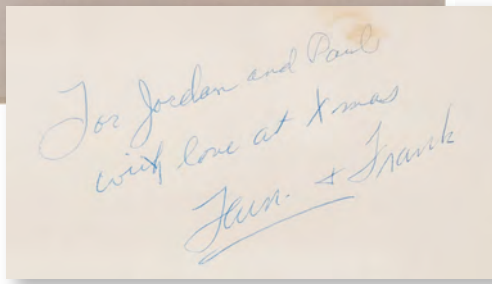 For Jordan and Paul
with love at Xmas
Fern. + Frank